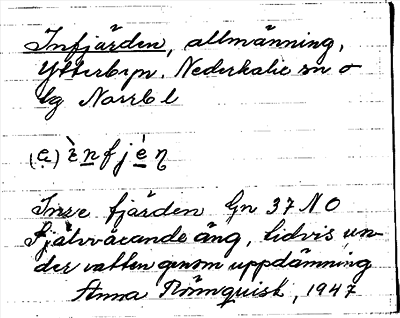 Infjärden, allmänning,
Ytterbyn. Nederkalix sn o
tg Norrb l
(e) ènfjén
Inre fjärden Gn 37 NO
Självväxande äng, tidvis un-
der vatten genom uppdämning
Anna Römquist, 1947